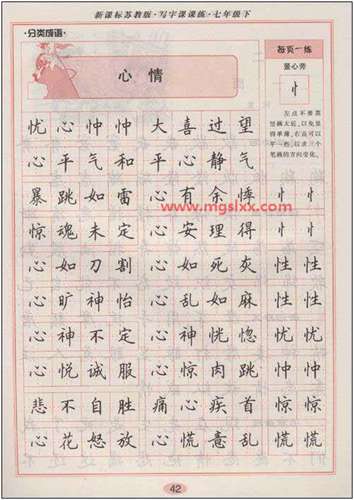 新课标苏教版·写字课课练·七年级下
·分类成语·
每页一练
心情
竖心旁
忄
左点不要离
竖画太远,以免显
得单薄,右点可以
平一些,以求三个
笔画的方向变化。
忧心忡忡 大喜过望
心平气和 平心静气
暴跳如雷 心有余悸 忄忄
www.mgslxx.com
惊魂未定 心安理得 忄忄
心如刀割 心如死灰 性性
心旷神怡 心乱如麻 性性
心神不定 心神恍惚 忧忧
心悦诚服 心惊肉跳 忡忡
悲不自胜 痛心疾首 惊惊
心花怒放 心慌意乱 慌慌
42